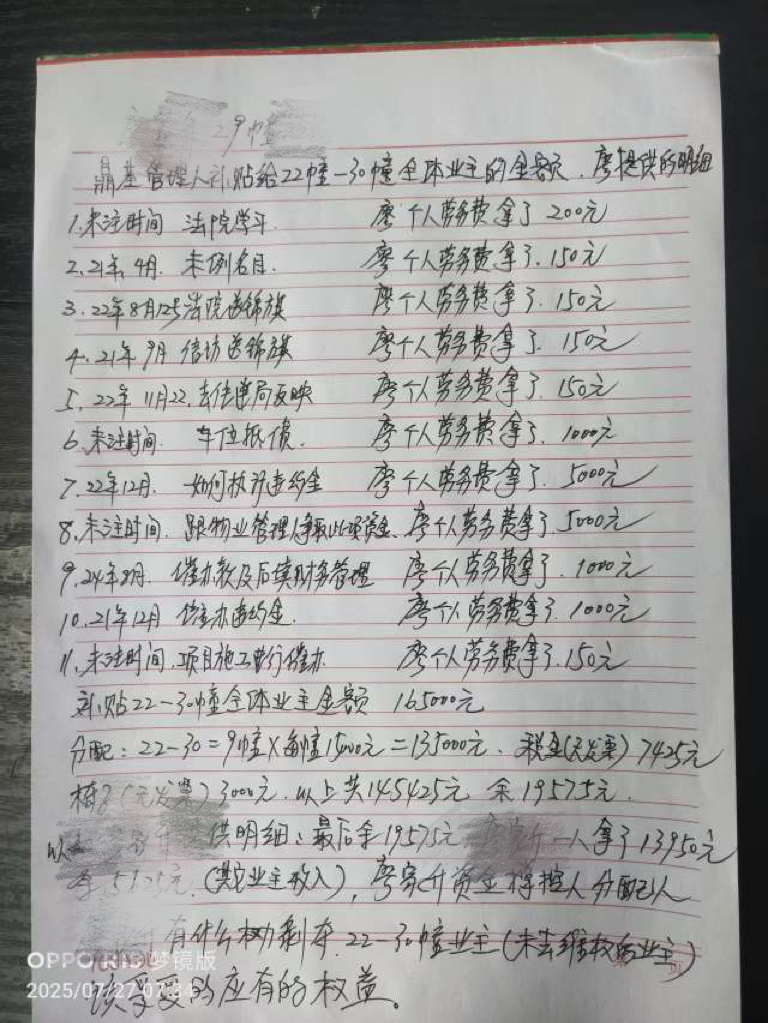 29幢
鼎基管理人补贴给22幢-30幢全体业主的金额、廖提供的明细
1.未注时间 法院学习. 廖个人劳务费拿了200元
2.21年,4月. 未例名目. 廖个人劳务费拿了.150元
3.22年8月12号法院送锦旗 廖个人劳务费拿了.150元
4.21年9月 信访送锦旗 廖个人劳务费拿了.150元
5.22年11月22.去住建局反映 廖个人劳务费拿了.150元
6.未注时间. 车位抵债. 廖个人劳务费拿了.1000元
7.22年12月. 如何执行违约金 廖个人劳务费拿了.5000元
8.未注时间.跟物业管理人争取此项资金、廖个人劳务费拿了.5000元
9.24年8月.催办款及后续财务管理 廖个人劳务费拿了.1000元
10.21年12月 催办违约金. 廖个人劳务费拿了.1000元
11.未注时间,项目施工进行催办 廖个人劳务费拿了.150元
补贴22-30幢全体业主金额 165000元
分配:22-30=9幢×每幢15000元=135000元. 税金(无发票)7425元
(无发票)3000元.以上共145425元 余19575元.
以 供明细:最后余19575元 一人拿了13950元
5625元.(其它业主收入),廖家升资金操控人分配已人
有什么权力剥夺.22-30幢业主(未去维权的业主)
该享受的应有的权益。
OPPO R15 梦镜版
2025/07/27 07:34